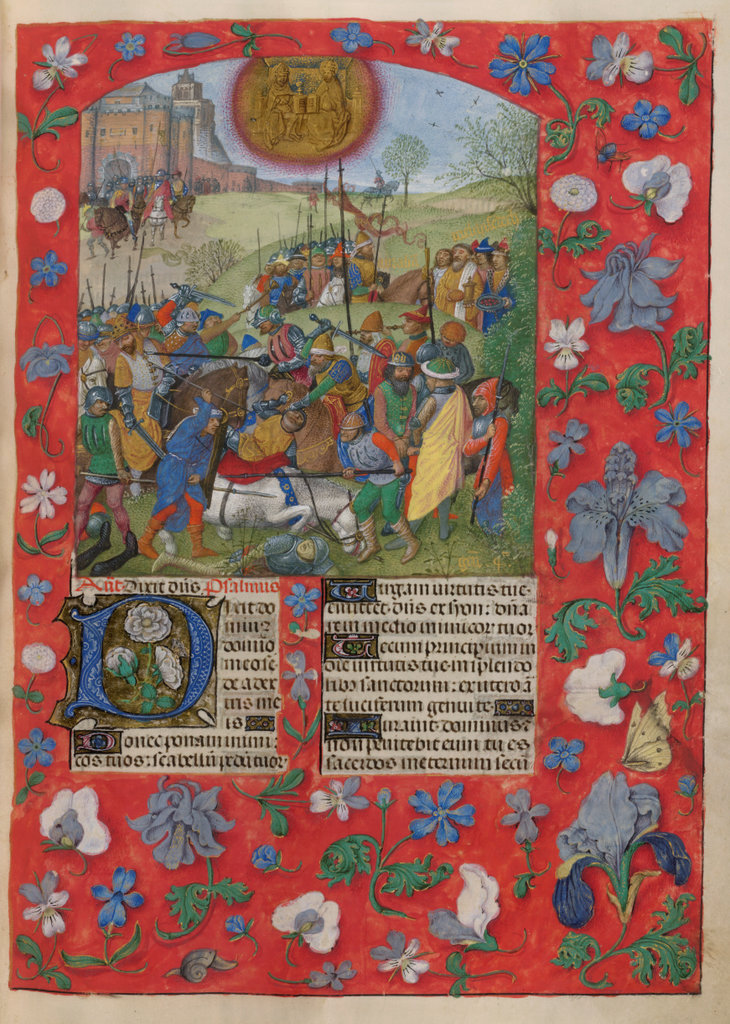 Añt. Dixit dñs Psalmus
Dixit do
minus
domino
meo: se
de a dex
tris me
is
Donec ponam inimi:
cos tuos: scabellū pedū tuor
Virgam virtutis tue
emittet dñs ex syon: dña
re in medio inimicor tuor
Tecum principium in
die virtutis tue in splendo
ribus sanctorum: ex utero ā
te luciferum genui te
Iuravit dominus &
non penitebit eum tu es
sacerdos in eternum secū